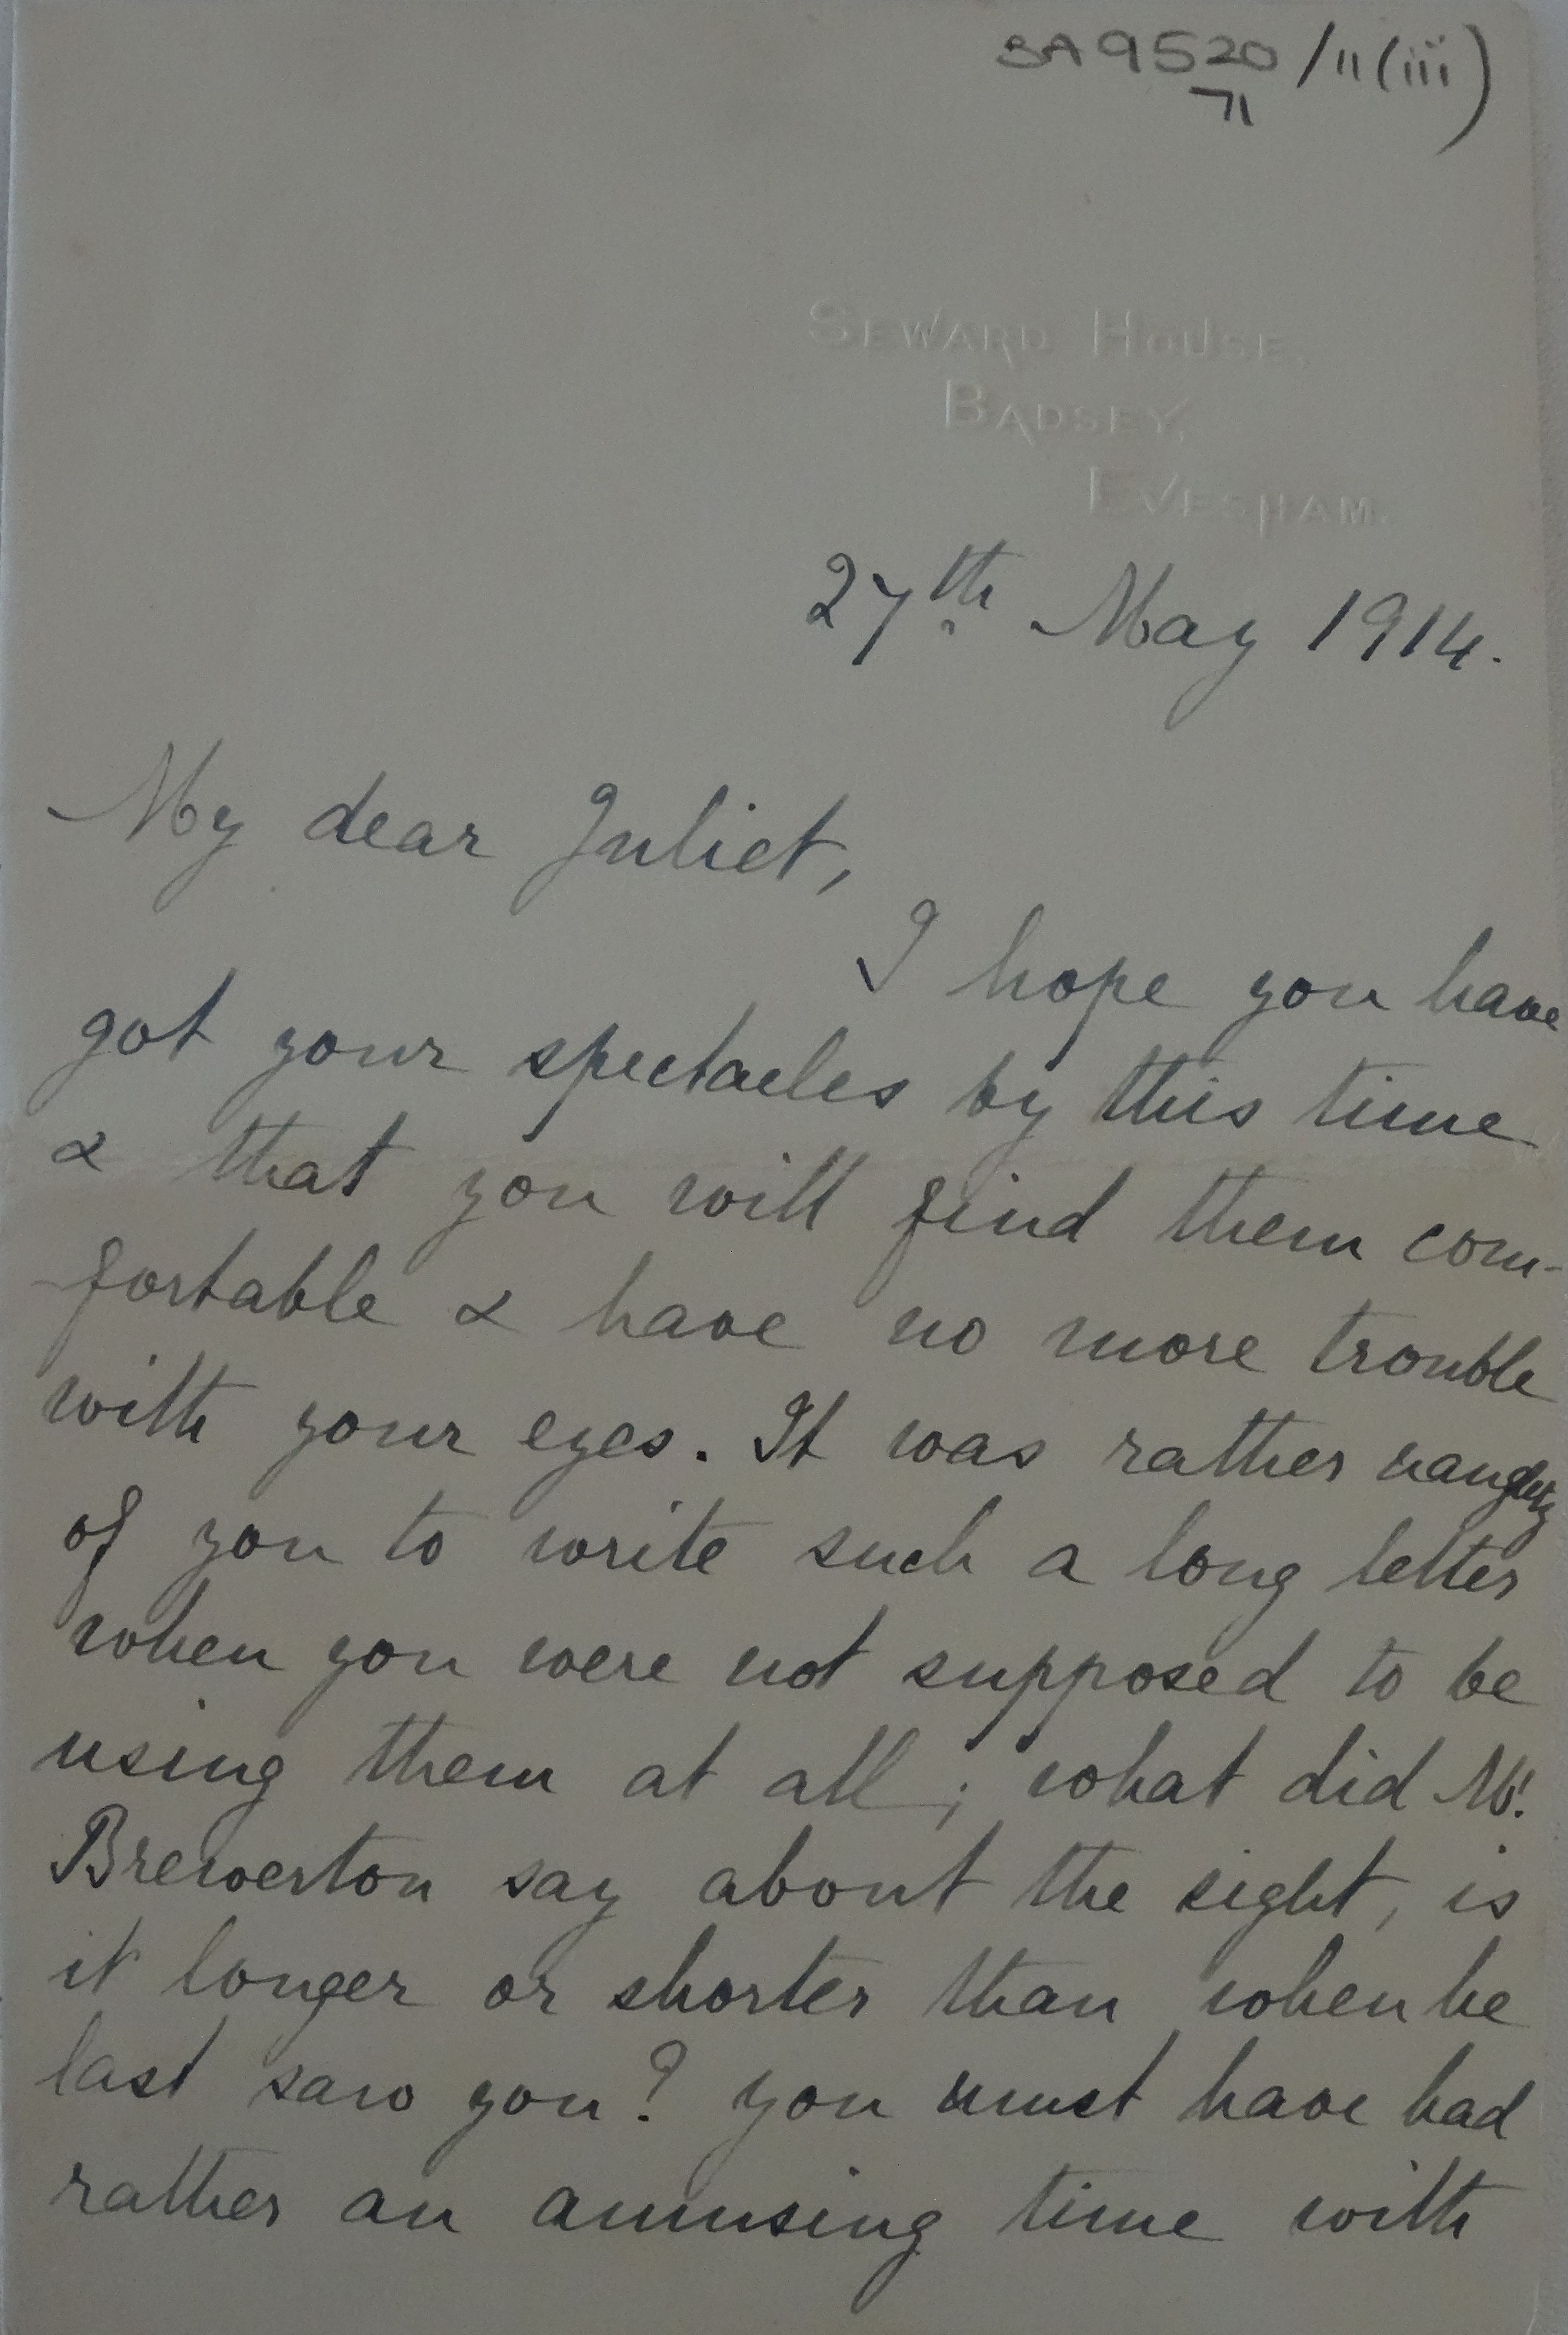 BA 9520/11(iii)
71
SEWARD HOUSE,
BADSEY,
EVESHAM.
27th May 1914.
My dear Juliet,
I hope you have
got your spectacles by this time
& that you will find them com-
fortable & have no more trouble
with your eyes. It was rather naughty
of you to write such a long letter
when you were not supposed to be
using them at all; what did Mr.
Brewerton say about the sight, is
it longer or shorter than when he
last saw you? you must have had
rather an amusing time with